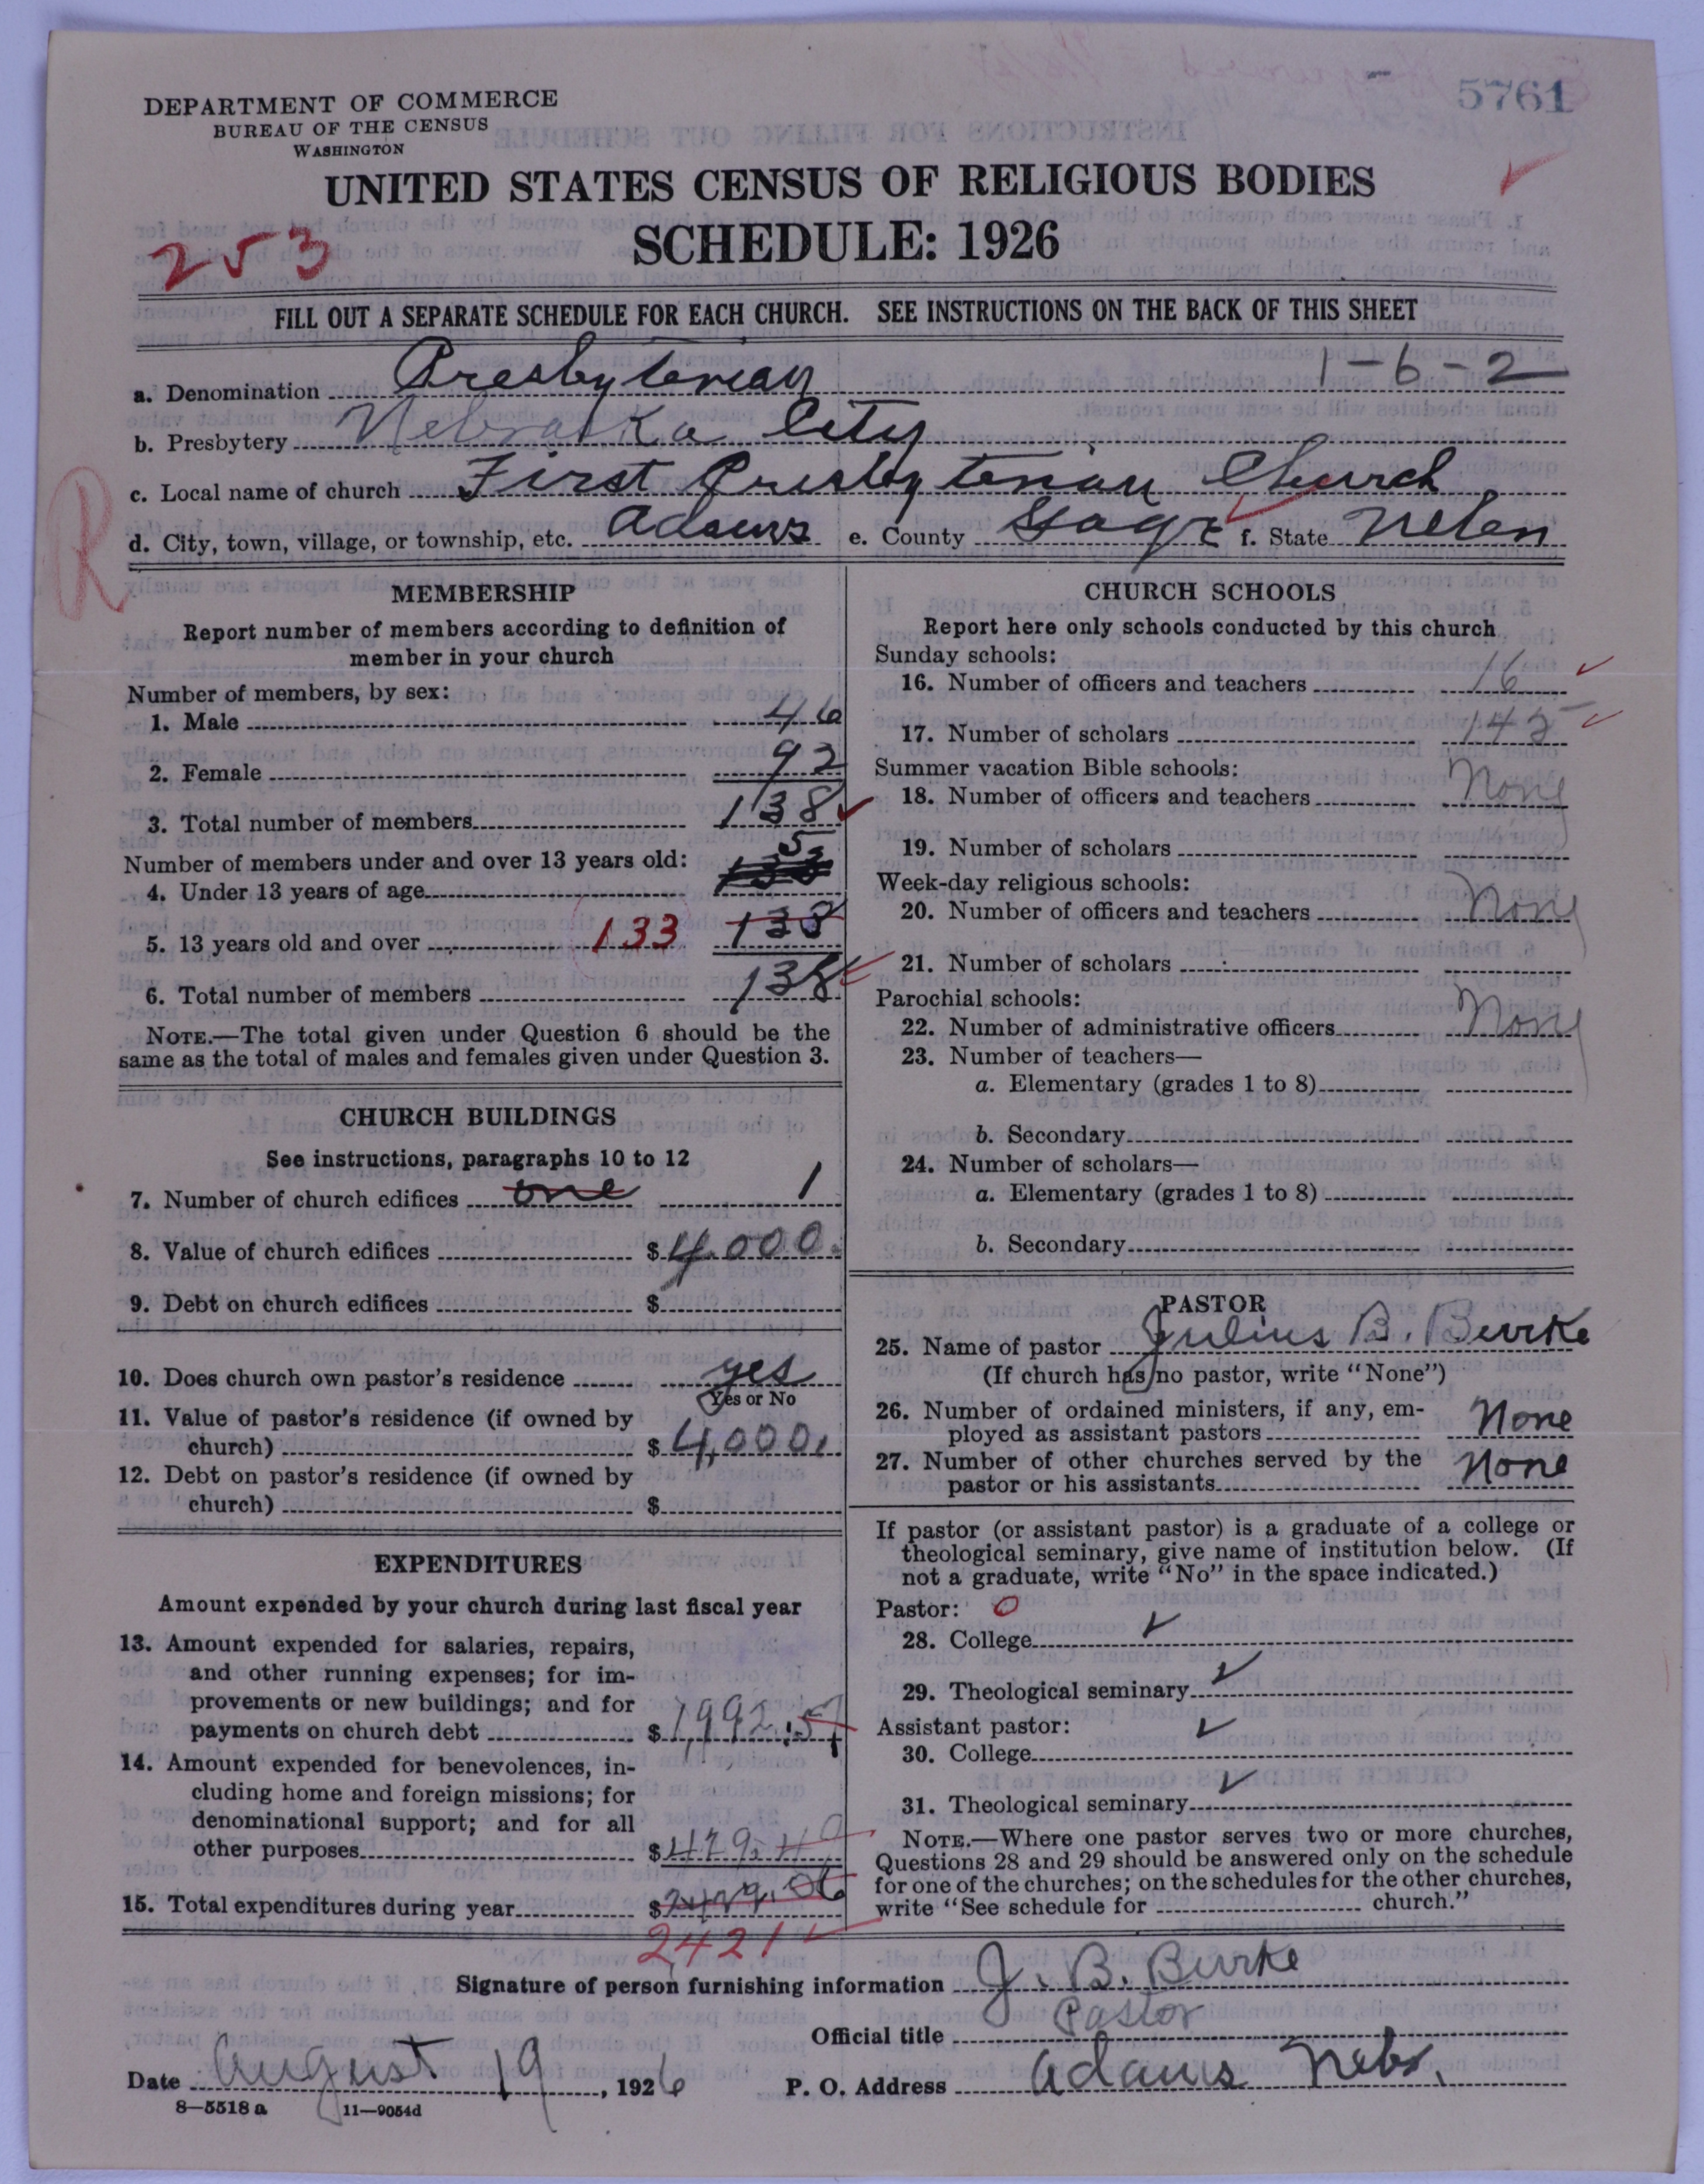 5761
DEPARTMENT OF COMMERCE
BUREAU OF THE CENSUS
WASHINGTON
UNITED STATES CENSUS OF RELIGIOUS BODIES
SCHEDULE: 1926
253
FILL OUT A SEPARATE SCHEDULE FOR EACH CHURCH. SEE INSTRUCTIONS ON THE BACK OF THIS SHEET
1-6-2
a. Denomination Presbyterian
b. Presbytery Nebraska City
c. Local name of church First Presbyterian Church
R
d. City, town, village, or township, etc. Adams e. County Gage f. State Nebr
MEMBERSHIP
Report number of members according to definition of
member in your church
Number of members, by sex:
1. Male 46
2. Female 92
3. Total number of members 138
Number of members under and over 13 years old:
4. Under 13 years of age 5
5. 13 years old and over 133 138
6. Total number of members 138
NOTE.—The total given under Question 6 should be the
same as the total of males and females given under Question 3.
CHURCH BUILDINGS
See instructions, paragraphs 10 to 12
7. Number of church edifices one 1
8. Value of church edifices $4,000.
9. Debt on church edifices $
10. Does church own pastor's residence yes
Yes or No
11. Value of pastor's residence (if owned by
church) $4,000.
12. Debt on pastor's residence (if owned by
church) $
EXPENDITURES
Amount expended by your church during last fiscal year
13. Amount expended for salaries, repairs,
and other running expenses; for im-
provements or new buildings; and for
payments on church debt $1,992.57
14. Amount expended for benevolences, in-
cluding home and foreign missions; for
denominational support; and for all
other purposes $429.49
15. Total expenditures during year $2429.06
2421
CHURCH SCHOOLS
Report here only schools conducted by this church
Sunday schools:
16. Number of officers and teachers 16
17. Number of scholars 145
Summer vacation Bible schools:
18. Number of officers and teachers None
19. Number of scholars
Week-day religious schools:
20. Number of officers and teachers None
21. Number of scholars
Parochial schools:
22. Number of administrative officers None
23. Number of teachers—
a. Elementary (grades 1 to 8)
b. Secondary
24. Number of scholars—
a. Elementary (grades 1 to 8)
b. Secondary
PASTOR
25. Name of pastor Julius B. Burke
(If church has no pastor, write "None")
26. Number of ordained ministers, if any, em-
ployed as assistant pastors None
27. Number of other churches served by the
pastor or his assistants None
If pastor (or assistant pastor) is a graduate of a college or
theological seminary, give name of institution below. (If
not a graduate, write "No" in the space indicated.)
Pastor: 0
28. College ✓
29. Theological seminary ✓
Assistant pastor: ✓
30. College
31. Theological seminary ✓
NOTE.—Where one pastor serves two or more churches,
Questions 28 and 29 should be answered only on the schedule
for one of the churches; on the schedules for the other churches,
write "See schedule for church."
Signature of person furnishing information J. B. Burke
Official title Pastor
Date August 19, 1926 P. O. Address Adams Nebr.
8—5518 a 11—9054d